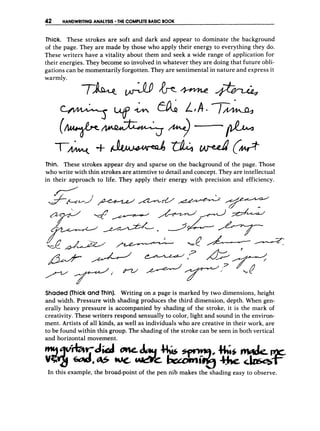 42 HANDWRITING ANALYSIS - THE COMPLETE BASIC BOOK
Thick. These strokes are soft and dark and appear to dominate the background
of the page. They are made by those who apply their energy to everything they do.
These writers have a vitality about them and seek a wide range of application for
their energies. They become so involved in whatever they are doing that future obli-
gations can be momentarily forgotten. They are sentimental in nature and express it
warmly.
There will be some stories
coming up in the L.A. Times
(maybe mentioning me) — plus
Time + Newsweek this week (not
Thin. These strokes appear dry and sparse on the background of the page. Those
who write with thin strokes are attentive to detail and concept. They are intellectual
in their approach to life. They apply their energy with precision and efficiency.
Four score and seven years
ago I was born on this
grand earth. How long
I shall remain I know not.
But who cares? Do you,
or you, or even you?
Shaded (Thick and Thin). Writing on a page is marked by two dimensions, height
and width. Pressure with shading produces the third dimension, depth. When gen-
erally heavy pressure is accompanied by shading of the stroke, it is the mark of
creativity. These writers respond sensually to color, light and sound in the environ-
ment. Artists of all kinds, as well as individuals who are creative in their work, are
to be found within this group. The shading of the stroke can be seen in both vertical
and horizontal movement.
my guitar died one day this spring, this made me
very sad, as we were becoming the closest
In this example, the broad-point of the pen nib makes the shading easy to observe.